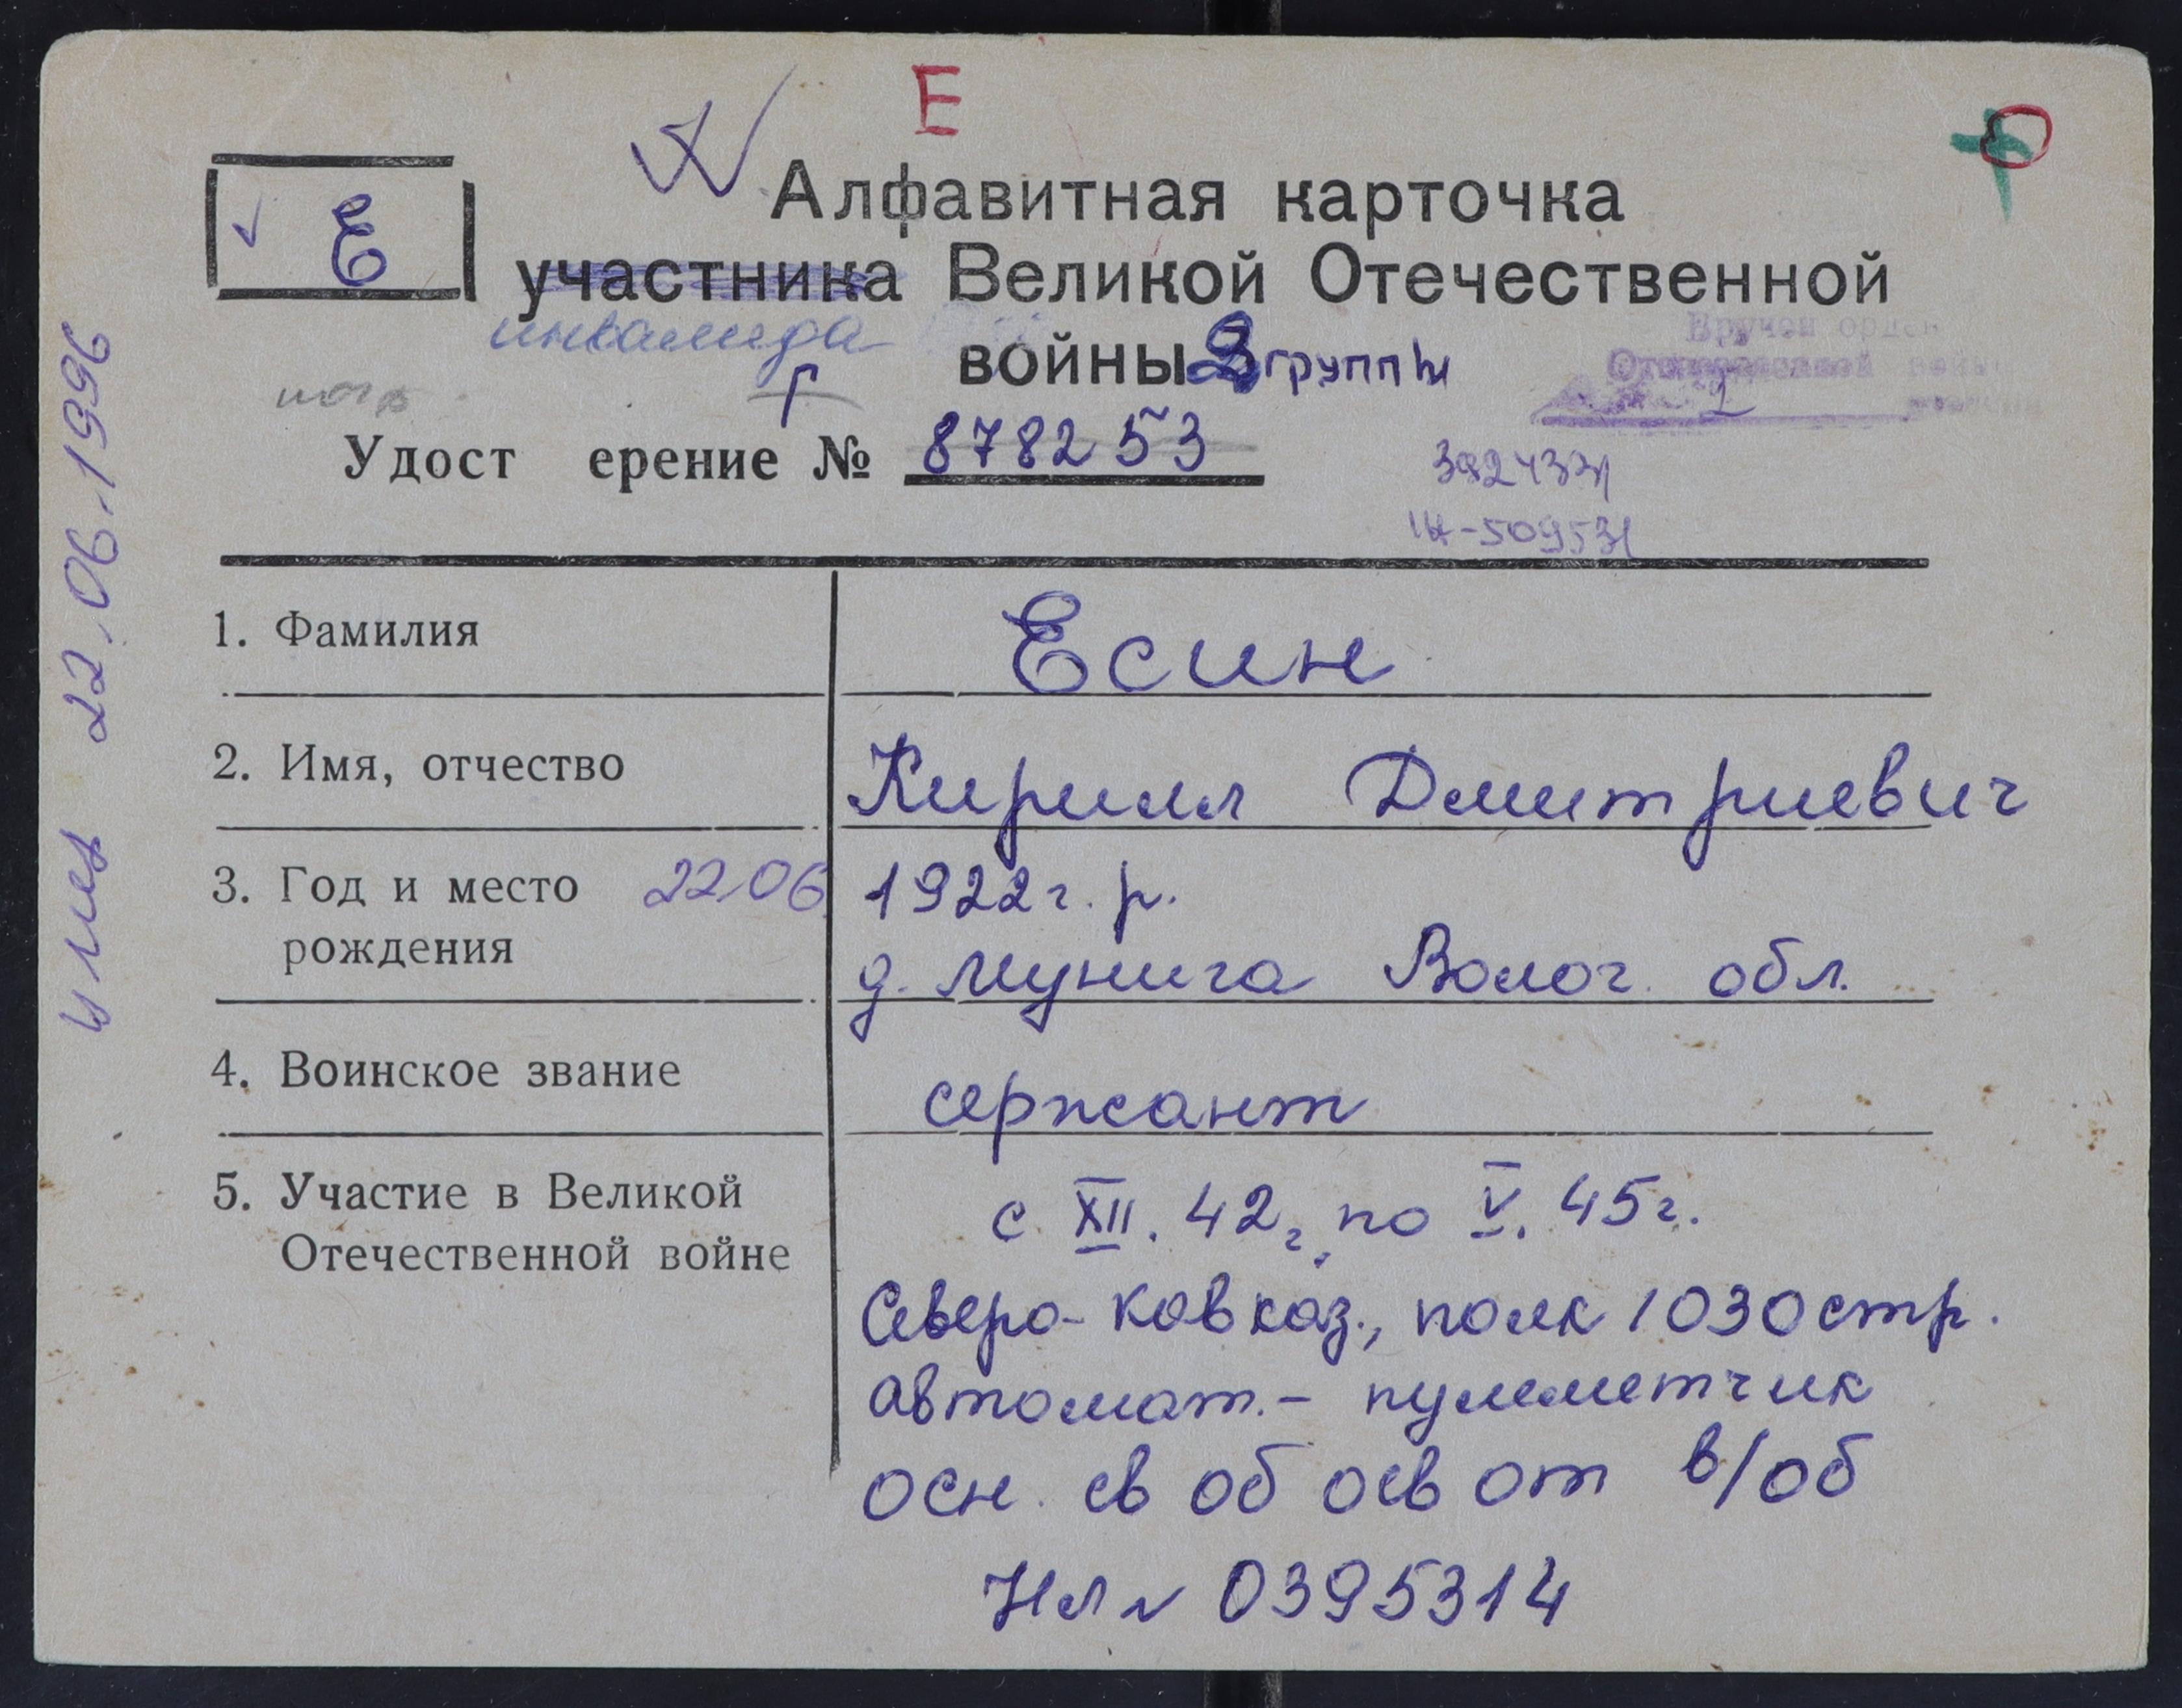 Е
Алфавитная карточка
Е
участника Великой Отечественной
инвалида
войны 2 группы
Вручен орден
Отечественной войны
2
Удост ерение № 878253
1. Фамилия Есин
2. Имя, отчество Кирилл Дмитриевич
3. Год и место 22.06. 1922 г. р.
рождения д. Мунига Волог. обл.
4. Воинское звание сержант
5. Участие в Великой с XII. 42 г. по V. 45 г.
Отечественной войне
Северо-Кавказ., полк 1030 стр.
автомат. - пулеметчик
осн. св об осв от в/об
Нл № 0395314
умер 22.06.1996